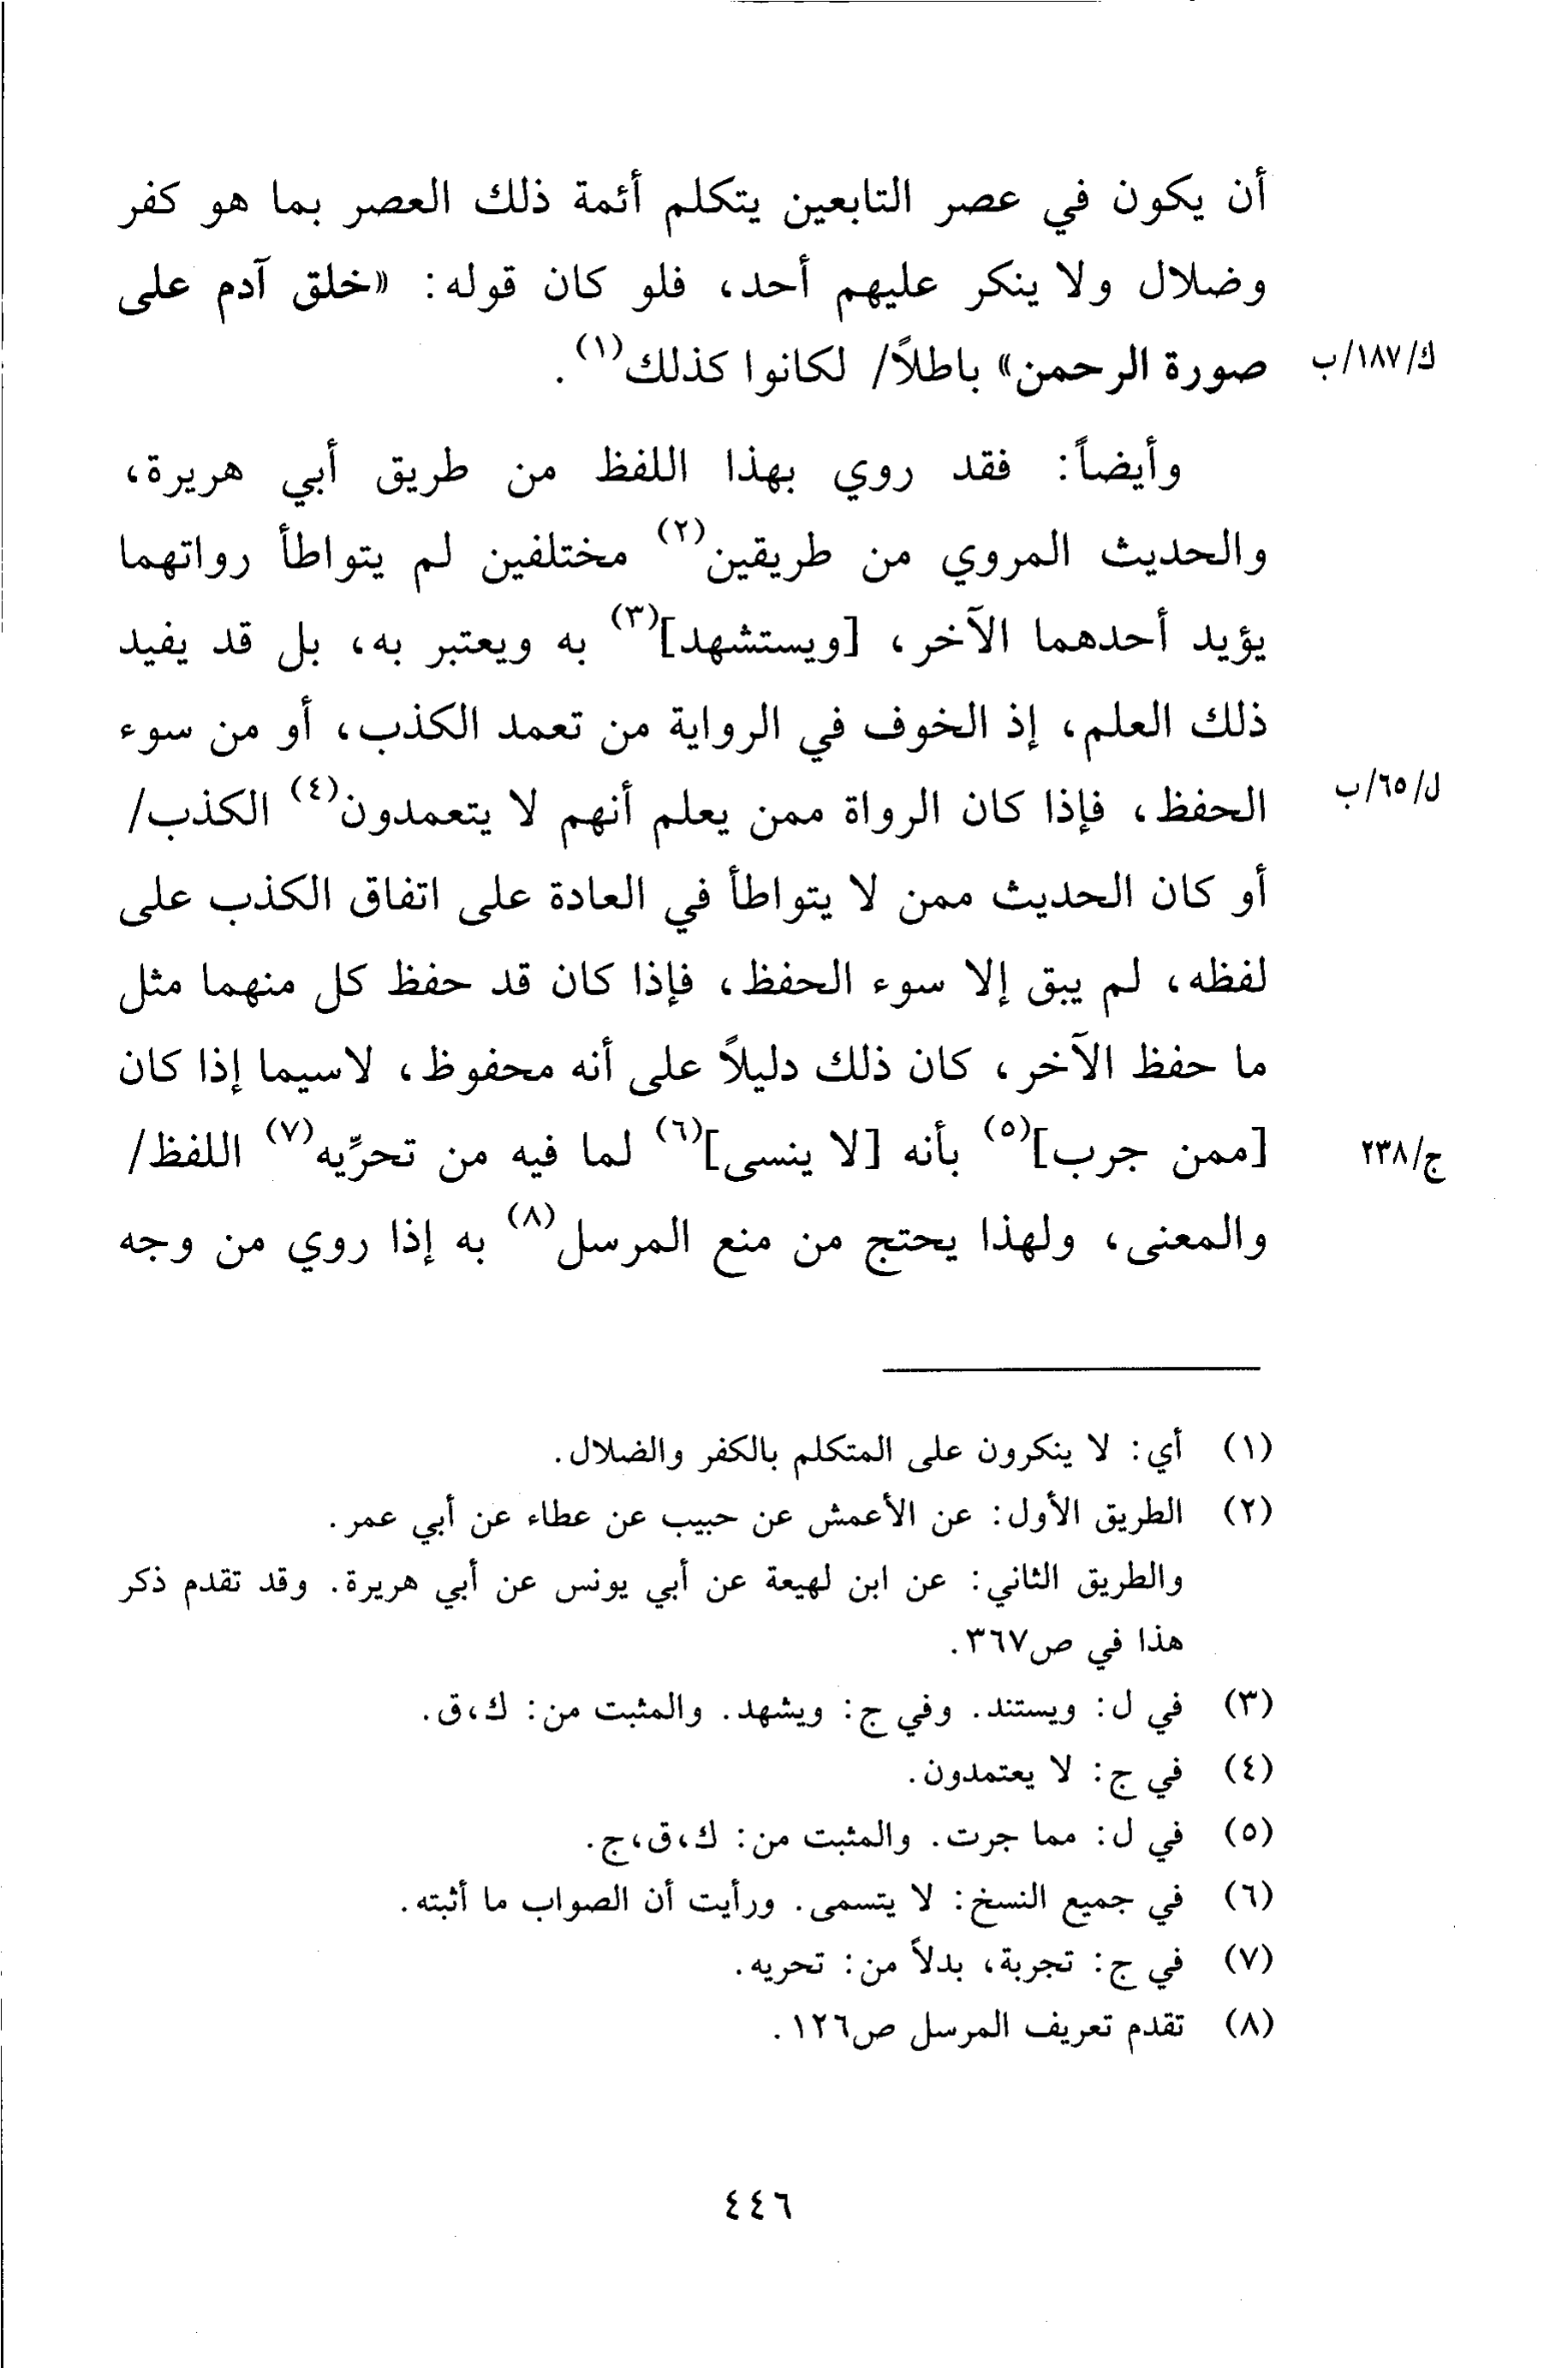 أن يكون في عصر التابعين يتكلم أئمة ذلك العصر بما هو كفر
وضلال ولا ينكر عليهم أحد، فلو كان قوله: «خلق آدم على
صورة الرحمن» باطلاً/ لكانوا كذلك(١).
ك/١٨٧/ب
وأيضاً: فقد روي بهذا اللفظ من طريق أبي هريرة،
والحديث المروي من طريقين(٢) مختلفين لم يتواطأ رواتهما
يؤيد أحدهما الآخر، [ويستشهد](٣) به ويعتبر به، بل قد يفيد
ذلك العلم، إذ الخوف في الرواية من تعمد الكذب، أو من سوء
الحفظ، فإذا كان الرواة ممن يعلم أنهم لا يتعمدون(٤) الكذب/
ل/٦٥/ب
أو كان الحديث ممن لا يتواطأ في العادة على اتفاق الكذب على
لفظه، لم يبق إلا سوء الحفظ، فإذا كان قد حفظ كل منهما مثل
ما حفظ الآخر، كان ذلك دليلاً على أنه محفوظ، لاسيما إذا كان
[ممن جرب](٥) بأنه [لا ينسى](٦) لما فيه من تحرِّيه(٧) اللفظ/
ج/٢٣٨
والمعنى، ولهذا يحتج من منع المرسل(٨) به إذا روي من وجه
(١) أي: لا ينكرون على المتكلم بالكفر والضلال.
(٢) الطريق الأول: عن الأعمش عن حبيب عن عطاء عن أبي عمر.
والطريق الثاني: عن ابن لهيعة عن أبي يونس عن أبي هريرة. وقد تقدم ذكر
هذا في ص٣٦٧.
(٣) في ل: ويستند. وفي ج: ويشهد. والمثبت من: ك،ق.
(٤) في ج: لا يعتمدون.
(٥) في ل: مما جرت. والمثبت من: ك،ق،ج.
(٦) في جميع النسخ: لا يتسمى. ورأيت أن الصواب ما أثبته.
(٧) في ج: تجربة، بدلاً من: تحريه.
(٨) تقدم تعريف المرسل ص١٢٦.
٤٤٦